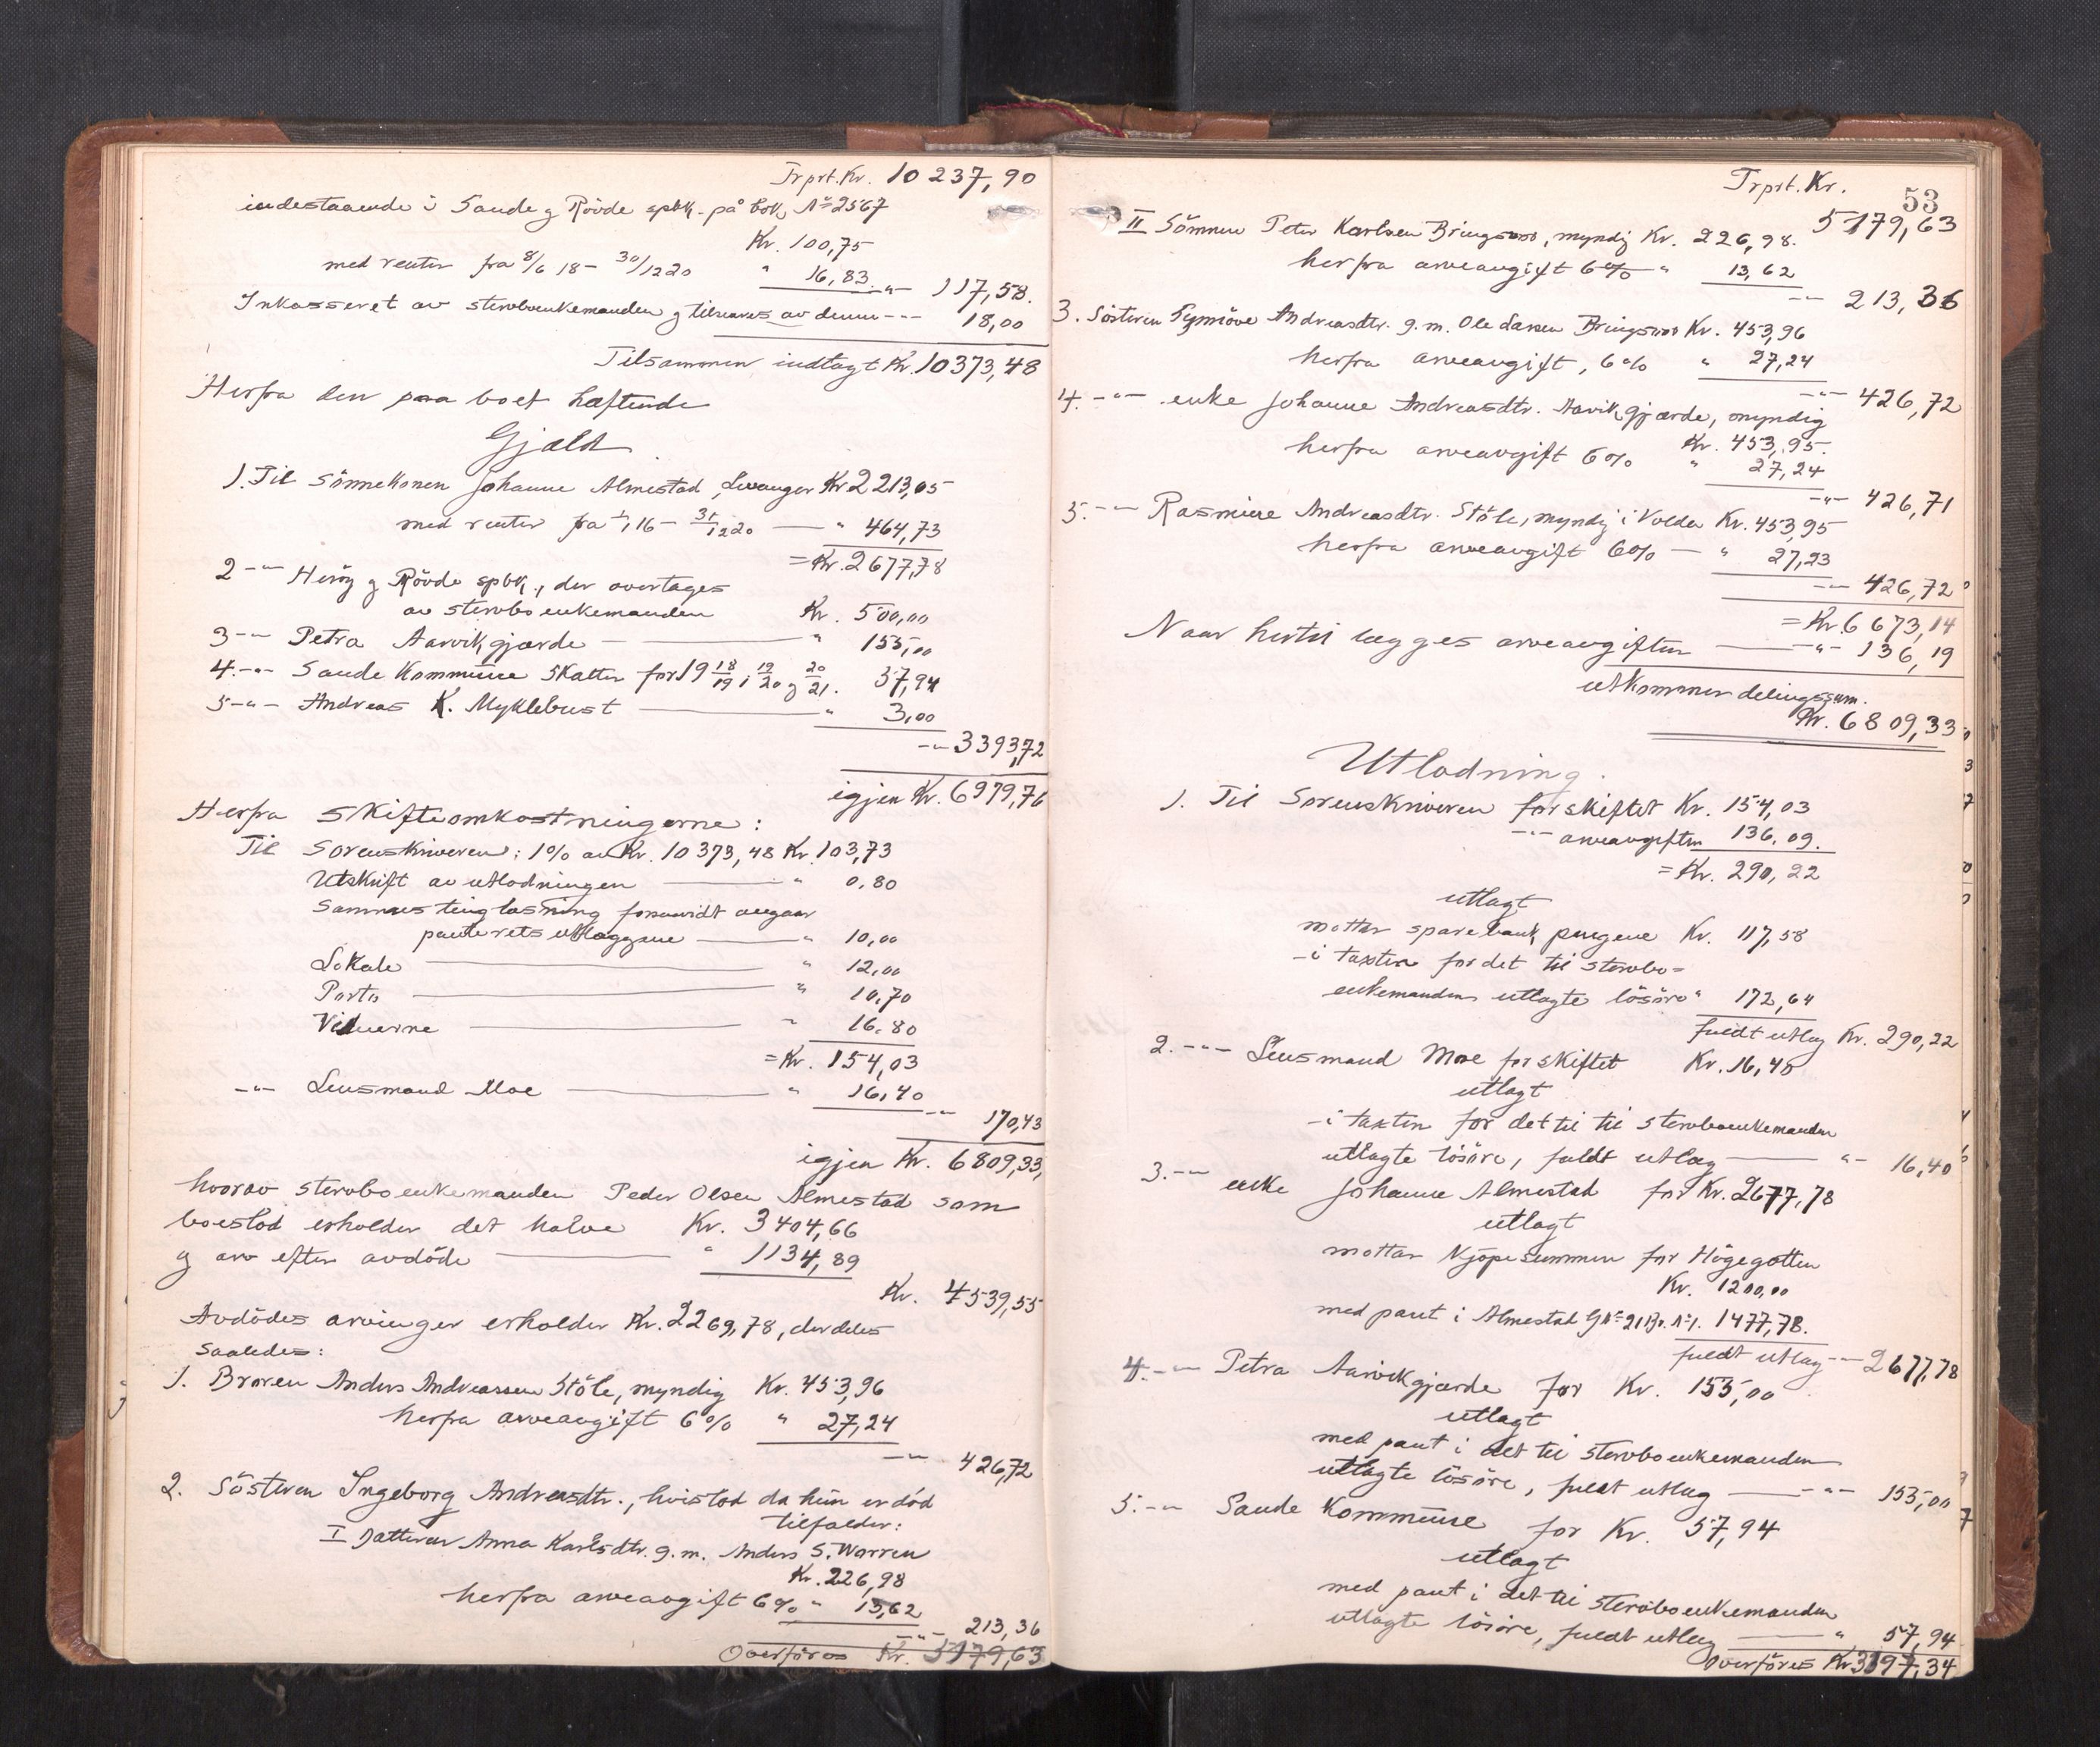 Trprt. Kr. 10 237,90
indestaaende i Sande & Rövde spbk. på bok No 2567
Kr. 100,75
med renter fra 8/6 18 - 30/12 20 " 16,83 -"- 117,58.
Inkasseret av stervboenkemanden & tilsvares av denne --- 18,00
Tilsammen indtægt Kr. 10373,48
Herfra den paa boet heftende
Gjæld
1. Til Sönnekonen Johanne Almestad, Levanger Kr 2213,05
med renter fra 1/1 16 - 31/12 20 — " 464,73
= Kr. 2677,78
2 -"- Heröy & Rövde spbk., der overtages
av stervboenkemanden Kr. 500,00
3 -"- Petra Aarvikgjærde — " 155,00
4. -"- Sande Kommune Skatter for 19 18/19, 19/20 & 20/21. 57,94
5 -"- Andreas K. Myklebust — " 3,00
-"- 3393,72
igjen Kr. 6979,76
Herfra Skifteomkostningerne:
Til Sorenskriveren: 1% av Kr. 10373,48 Kr. 103,73
Utskrift av utlodningen — " 0.80
Sammes tinglæsning forsaavidt angaar
panterets utlæggene — " 10,00
Lokale — " 12,00
Porto — " 10,70
Vidnerne — " 16.80
= Kr. 154,03
-"- Lensmand Moe — " 16,40
-"- 170,43
igjen Kr. 6809,33,
hvorav stervboenkemanden Peder Olsen Almestad som
boeslod erholder det halve Kr. 3404,66
& arv efter avdöde — " 1134,89
Kr. 4539,55
Avdödes arvinger erholder Kr. 2269,78, der deles
saaledes:
1. Broren Anders Andreassen Stöle, myndig Kr. 453,96
herfra arveavgift 6% " 27,24
-"- 426,72
2. Sösteren Ingeborg Andreasdtr., hvis lod da hun er död
tilfalder:
I Datteren Anna Karlsdtr. g.m. Anders S. Warren
Kr. 226,98
herfra arveavgift 6% " 13,62
-"- 213,36
Overföres Kr. 5179,63
53
Trprt. Kr.
5179,63
II Sönnen Peter Karlsen Bringsvor, myndig Kr. 226,98.
herfra arveavgift 6% " 13,62
-"- 213,36
3. Sösteren Synnöve Andreasdtr. g.m. Ole Larsen Bringsvor Kr. 453,96
herfra arveavgift, 6% " 27,24
-"- 426,72
4. -"- enke Johanne Andreasdtr. Aarvikgjærde, myndig
Kr. 453,95.
herfra arveavgift 6% " 27,24
-"- 426,71
5. -"- Rasmine Andreasdtr. Stöle, myndig i Volda Kr. 453,95
herfra arveavgift 6% — " 27,23
-"- 426,72
= Kr. 6673,14
Naar hertil lægges arveavgiften — -"- 136,19
utkommer delingssum.
Kr. 6809,33
Utlodning.
1. Til Sorenskriveren for skiftet Kr. 154,03
-"- arveavgiften 136,09.
= Kr. 290,22
utlagt
mottar sparebankpengene Kr. 117,58
- i taxten for det til stervbo=
enkemanden utlagte lösöre " 172,64
fuldt utlæg Kr. 290,22
2. -"- Lensmand Moe for skiftet Kr. 16,40
utlagt
- i taxten for det til til stervboenkemanden
utlagte lösöre, fuldt utlæg — "- 16,40
3. -"- enke Johanne Almestad for Kr. 2677,78
utlagt
mottar kjöpesummen for Högegotten
Kr. 1200,00
med pant i Almestad G No 21 Br. No 1. 1477,78.
fuldt utlæg -"- 2677,78
4. -"- Petra Aarvikgjærde for Kr. 155,00
utlagt
med pant i det til stervboenkemanden
utlagte lösöre, fuldt utlæg — -"- 155,00
5. -"- Sande Kommune for Kr. 57,94
utlagt
med pant i det til stervboenkemanden
utlagte lösöre, fuldt utlæg — " 57,94
Overföres Kr 3197,34